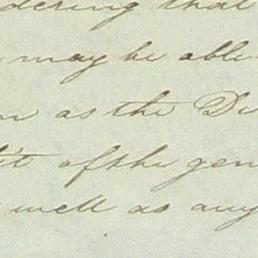 dering that
may be able
as the Du
it of the gen
well as any